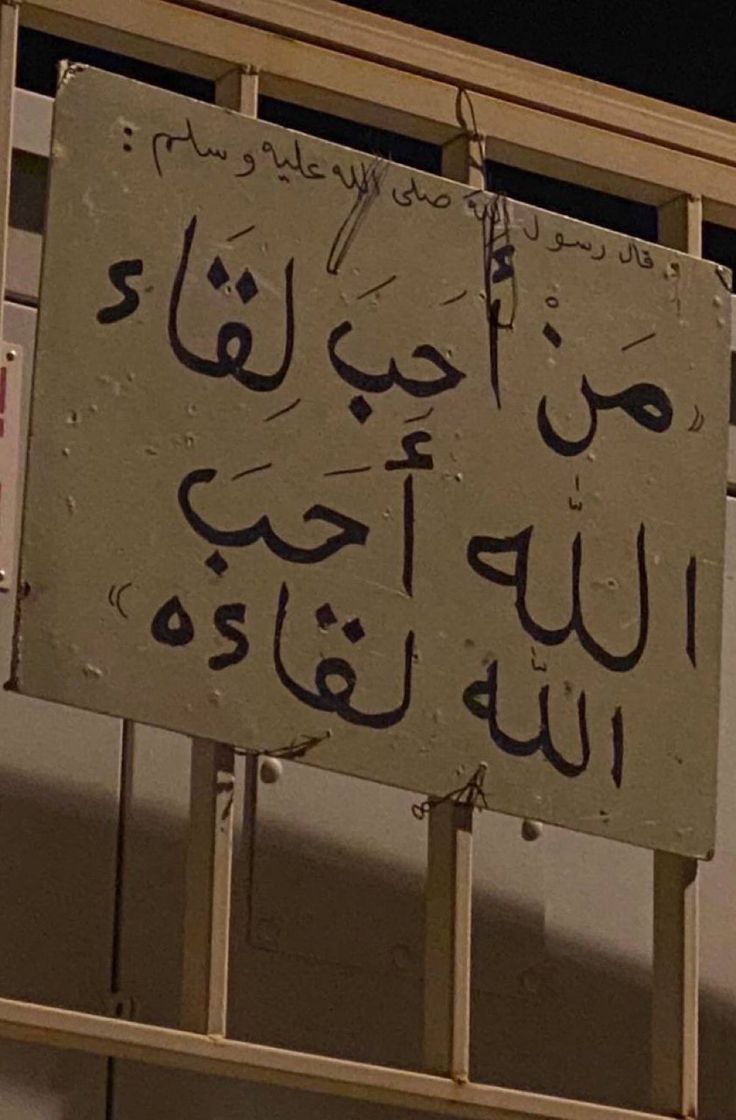 قال رسول الله صلى الله عليه وسلم :
«مَنْ أَحَبَ لِقَاء
اللّه أَحَبَ
اللّه لقاءه»